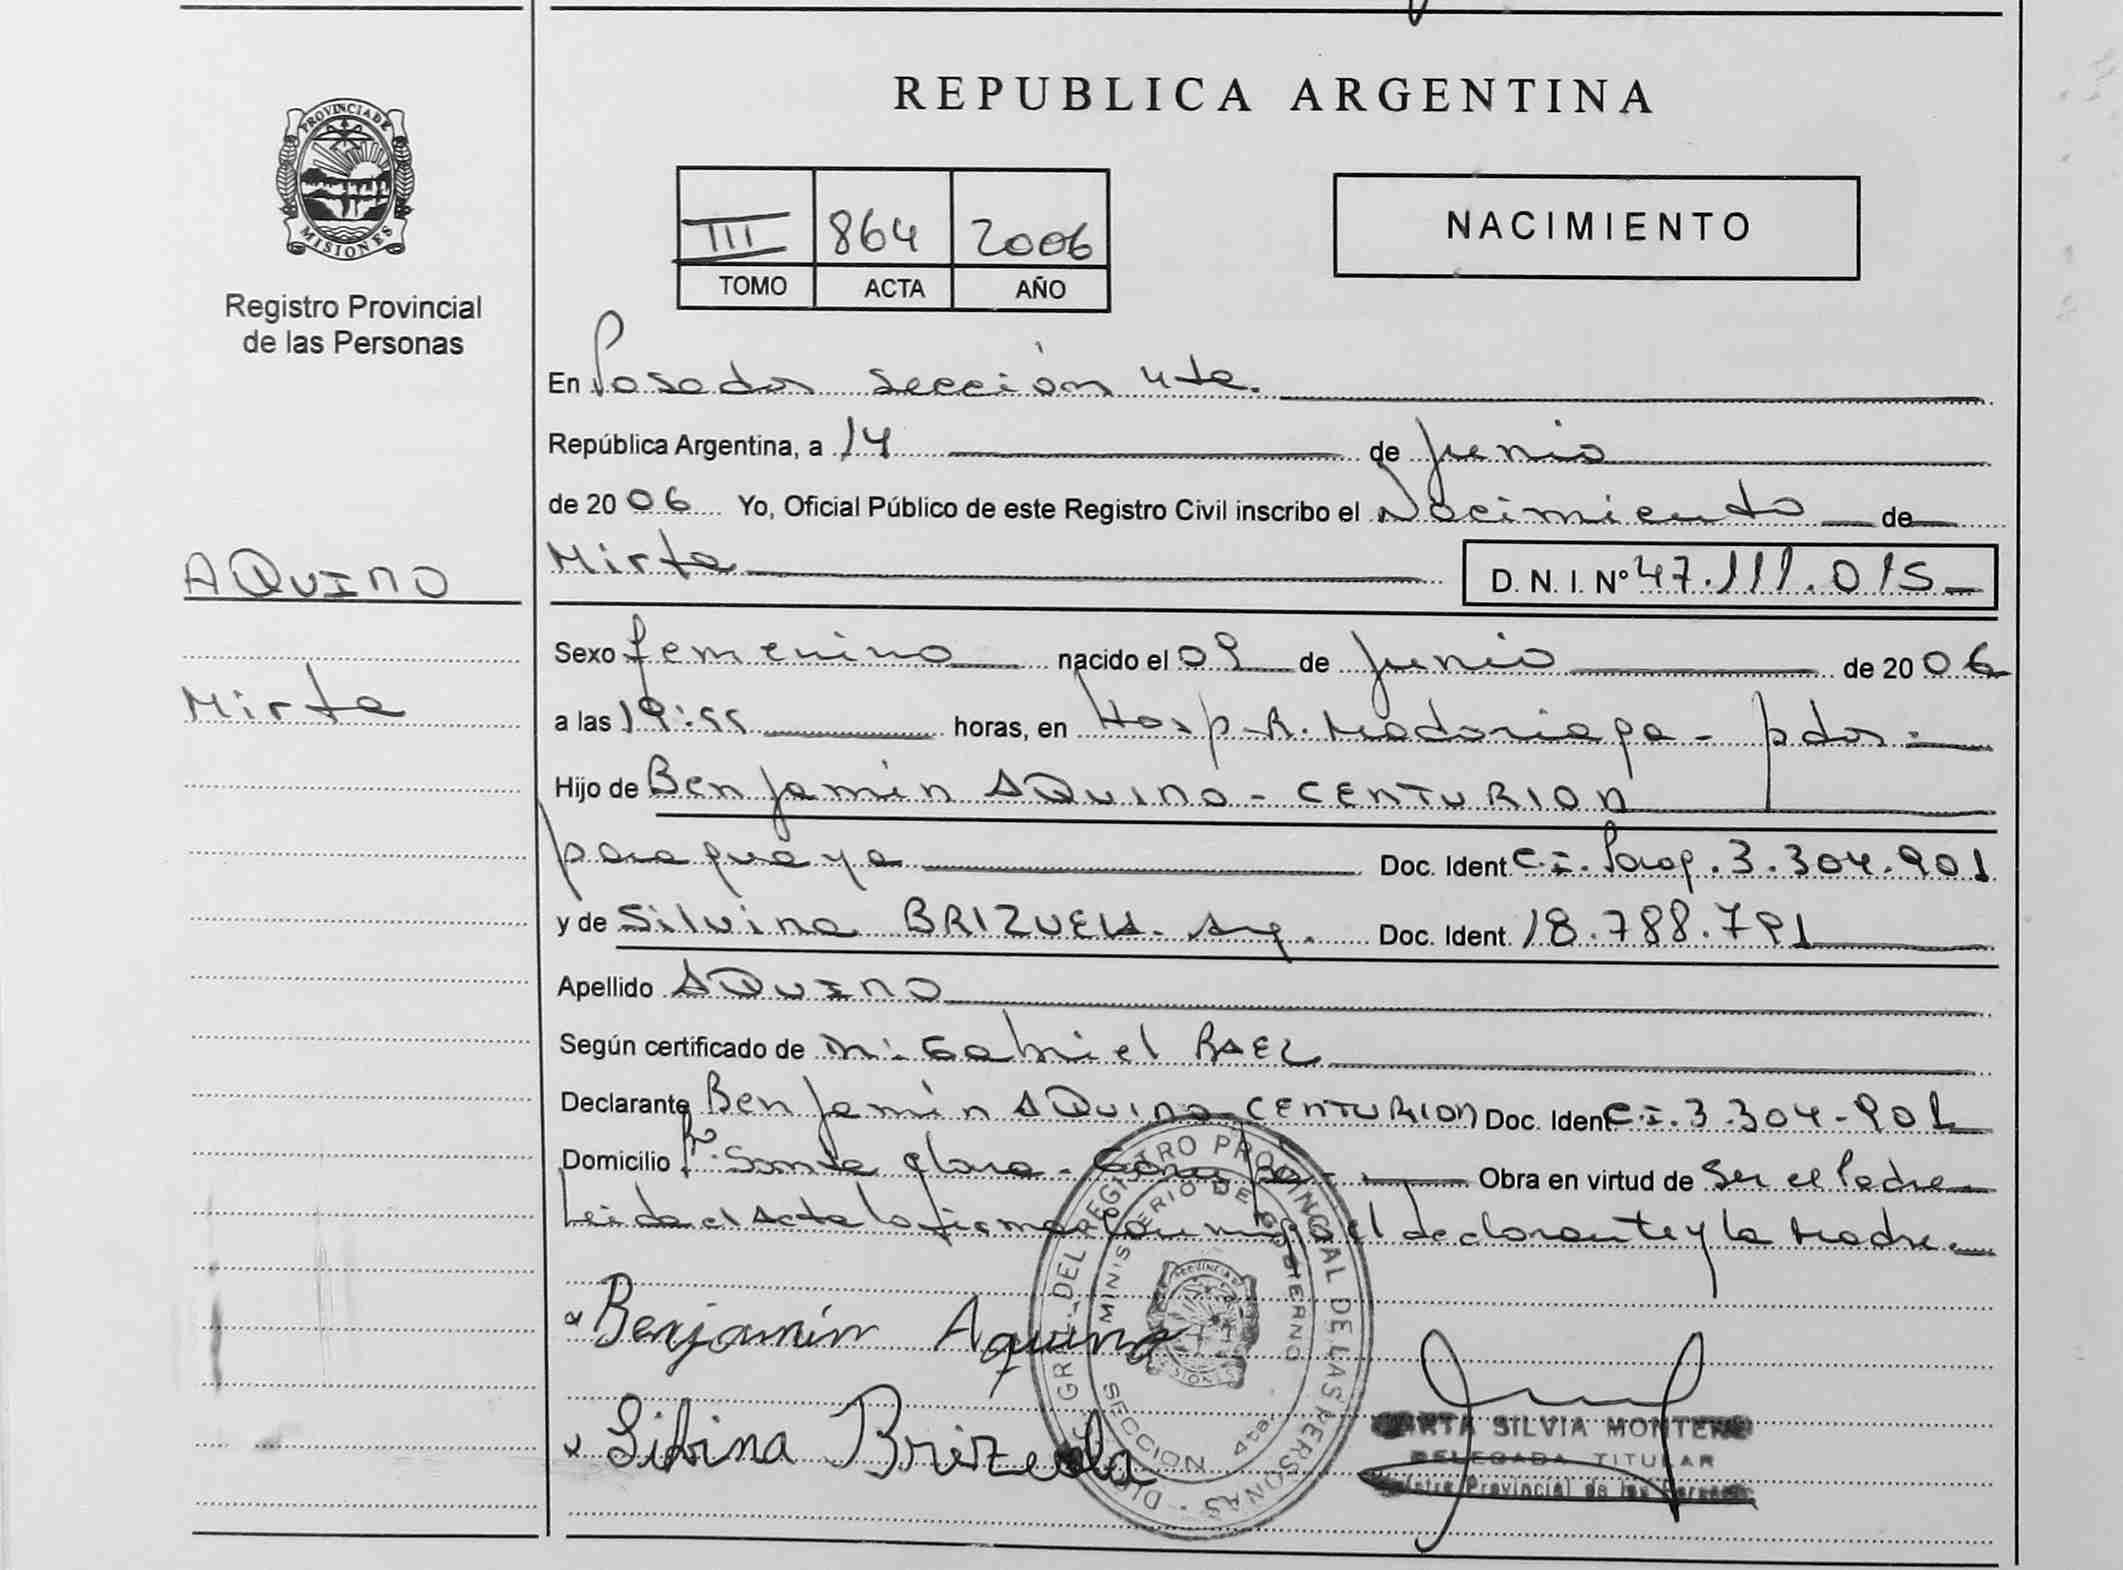 REPUBLICA ARGENTINA
PROVINCIA DE
MISIONES
Registro Provincial
de las Personas
III 864 2006
TOMO ACTA AÑO
NACIMIENTO
En Posadas Sección 4ta.
República Argentina, a 14 de Junio
de 2006 Yo, Oficial Público de este Registro Civil inscribo el Nacimiento de
AQUINO
Mirta D. N. I. Nº 47.111.015
Sexo femenino nacido el 09 de Junio de 2006
Mirta
a las 19:55 horas, en Hosp. R. Madariaga - pdas.
Hijo de Benjamín AQUINO - CENTURION
paraguaya Doc. Ident C.I. Parag. 3.304.901
y de Silvina BRIZUELA. Arg. Doc. Ident. 18.788.791
Apellido AQUINO
Según certificado de Gabriel BAEZ
Declarante Benjamín AQUINO CENTURION Doc. Iden C.I. 3.304.901
Domicilio Santa Clara - Obra en virtud de ser el Padre
Leida el Acta la firma conmigo el declarante y la Madre
Benjamín Aquino
Silvina Brizuela
DIRC. GRL. DEL REGISTRO PROVINCIAL DE LAS PERSONAS
MINISTERIO DE GOBIERNO
SECCION 4ta
MARTA SILVIA MONTERO
DELEGADA TITULAR
Registro Provincial de las Personas